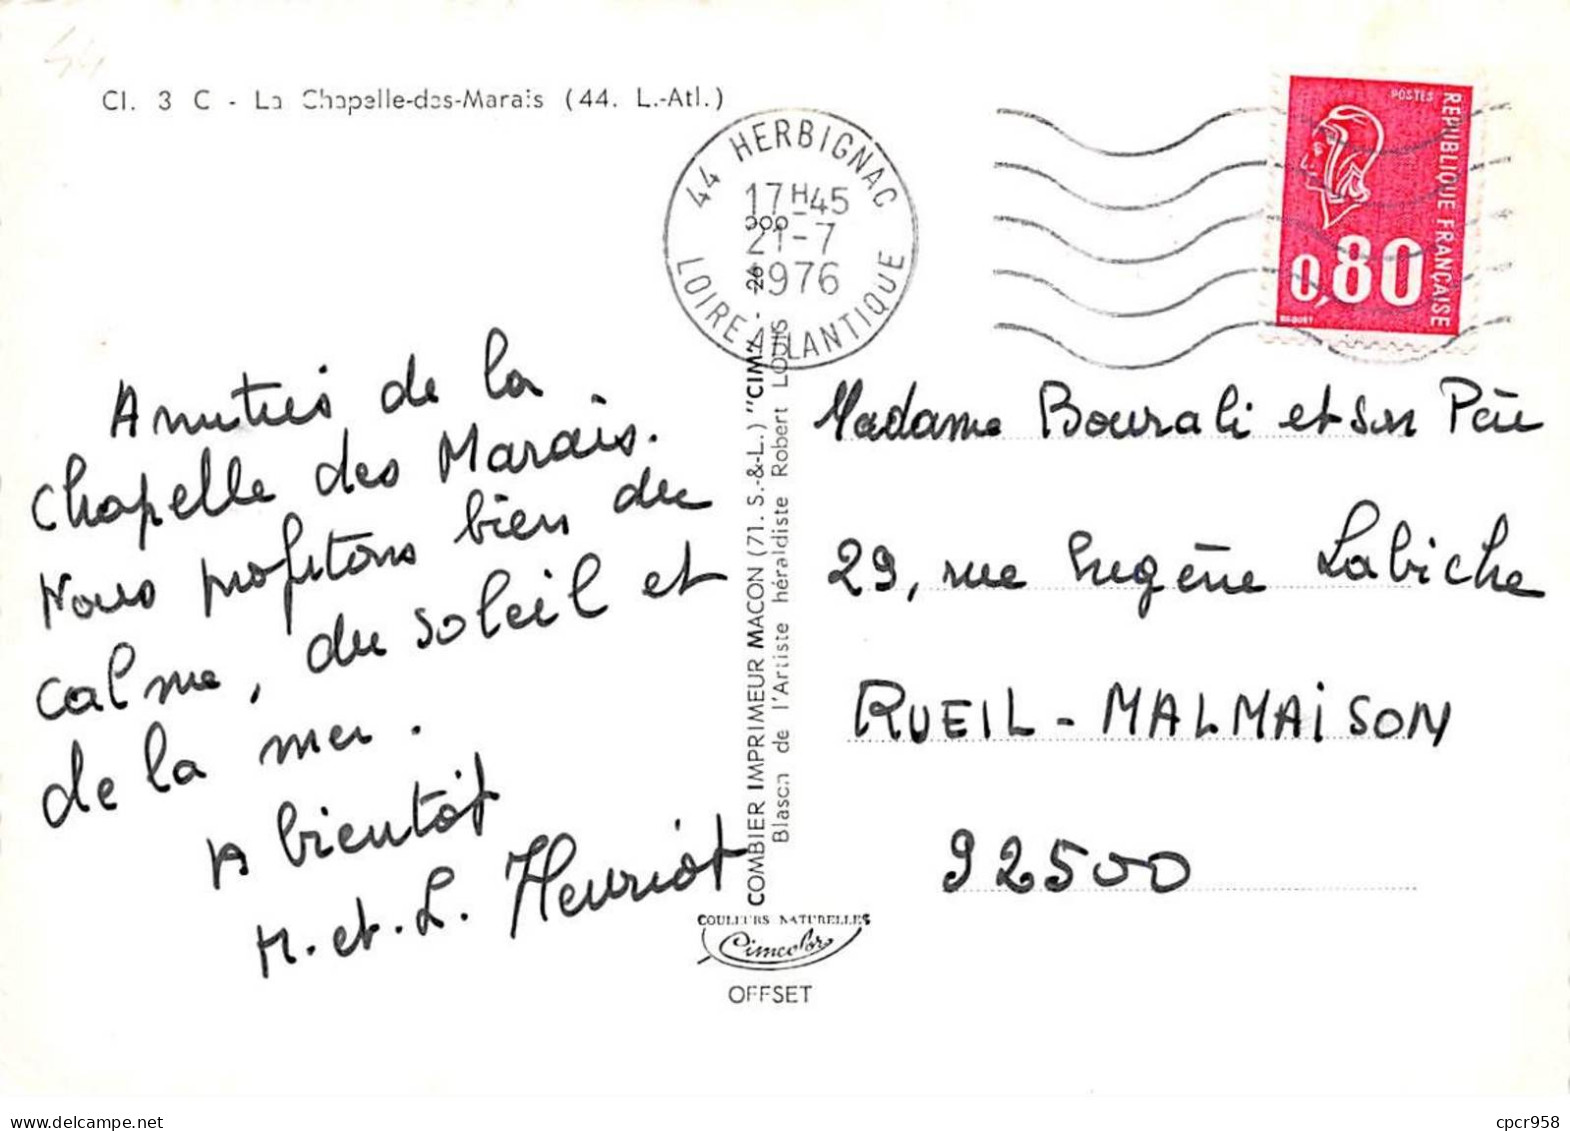 Cl. 3 C - La Chapelle-des-Marais (44. L.-Atl.)
44 HERBIGNAC
17H45
21-7
1976
LOIRE ATLANTIQUE
POSTES
REPUBLIQUE FRANÇAISE
0,80
BEQUET
Amitiés de la
Chapelle des Marais.
Nous profitons bien du
calme, du soleil et
de la mer.
A bientôt
M. et L. Henriot
COMBIER IMPRIMEUR MACON (71. S.-&-L.) "CIM"
Blason de l'Artiste héraldiste Robert LOUIS
COULEURS NATURELLES
Cimcolor
OFFSET
Madame Bourali et son Père
29, rue Eugène Labiche
RUEIL-MALMAiSON
92500
44
cpcr958